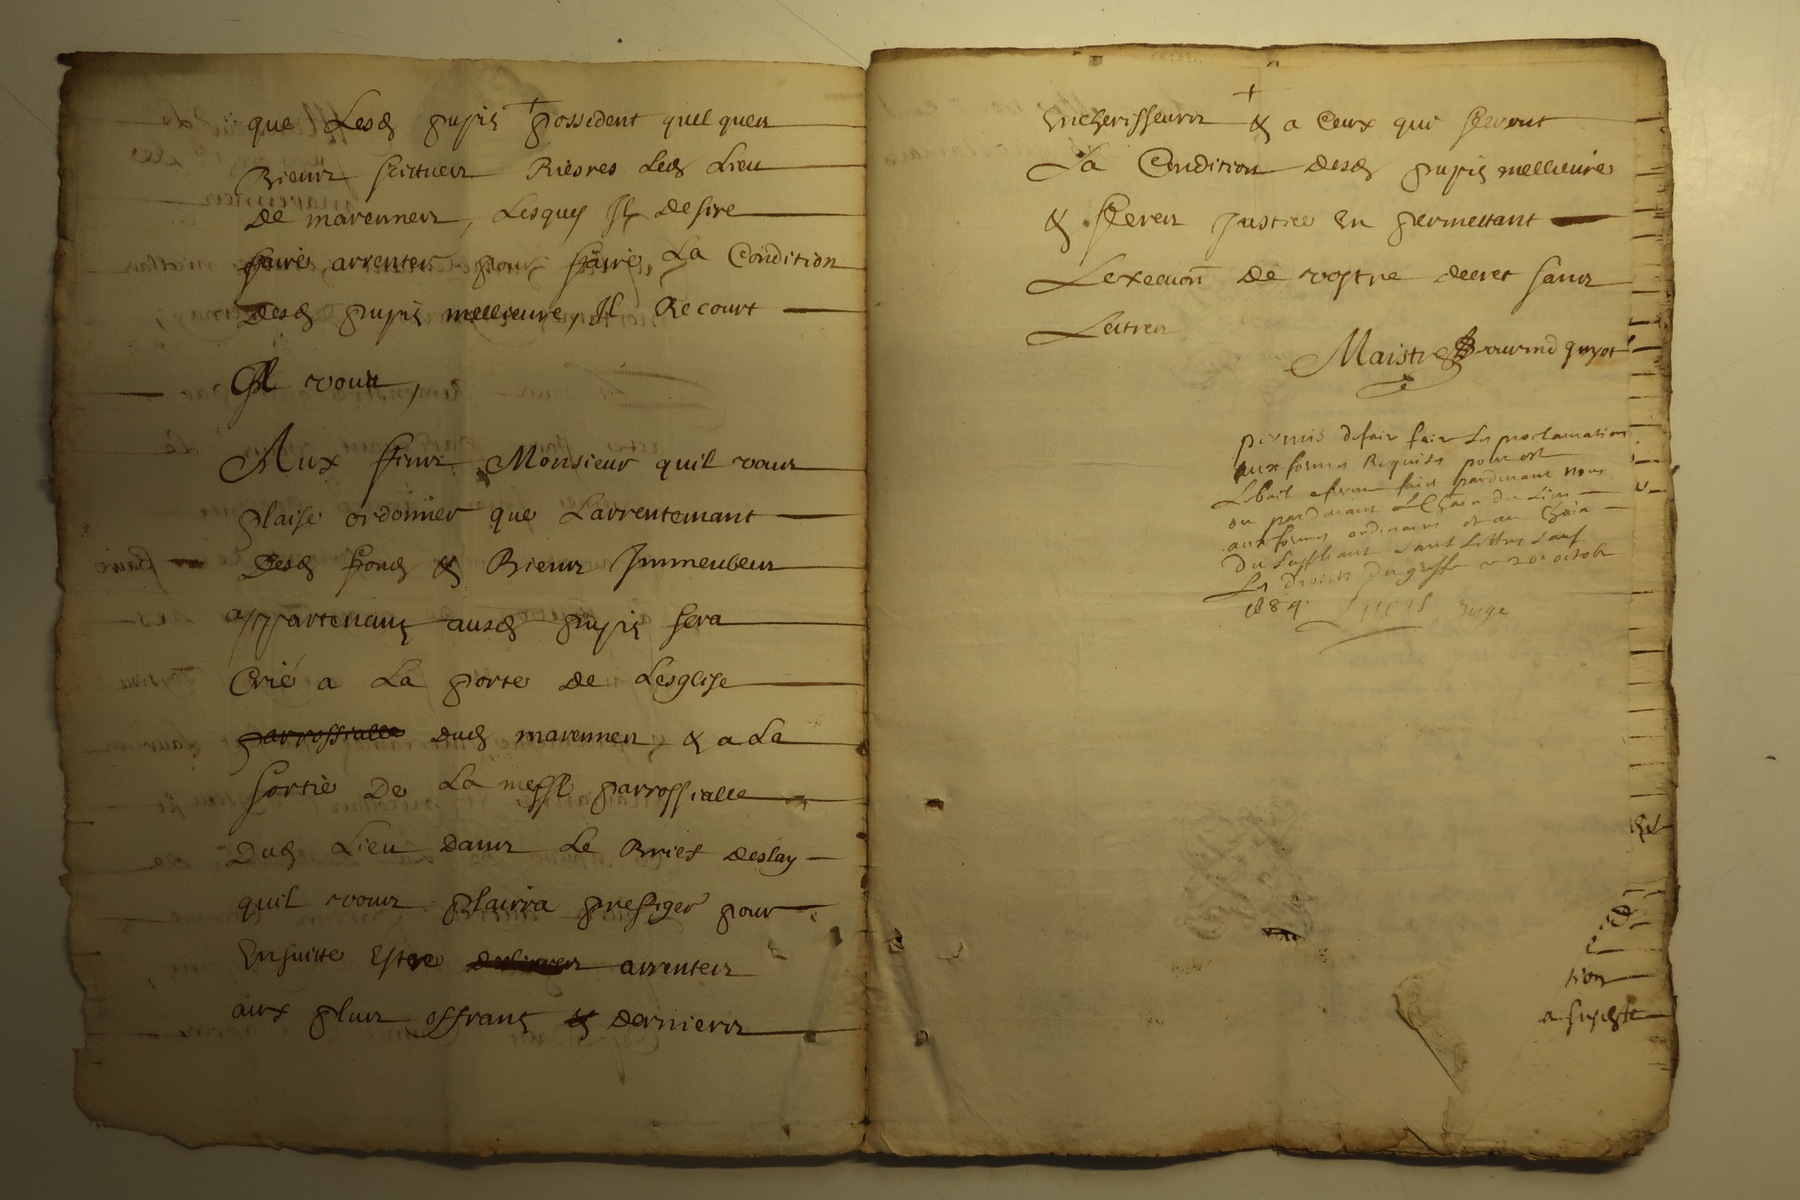 que Lesd pupis possident quelques
Biens scittues Rieres Led Lieu
De marennes, Lesquels Il desire
faire arrenter pour faire La Condition
Desd pupis mellieure, Il Recourt
A vous,
Aux fins Monsieur quil vous
plaise ordonner que Larrentemant
Desd fonds & Biens Immeubles
appartenants ausd pupis sera
Crié a La porte de Lesglise
parrossialle dud marennes & a La
sortie De La messe parrossialle
Dud Lieu dans Le Brief deslay
quil vous plairra prefiger pour
Ensuitte Estre arrentes
aux plus offrants & derniers
Encherisseurs & a Ceux qui feront
La Condition desd pupis mellieure
& ferez Justice En permettant
Lexecuon de vostre decret sans
Lettres
Maistre guyot
permis defair fair Les proclamations
aux formes Requises pour est
Lebail aferme fait pardevant nous
ou pardevant Le Chãn du Lieu
aux formes ordinaires et au
Du suppliant sans Lettres sauf
Les Droits Du greffe ce 20e octob
1684 Juge
tion